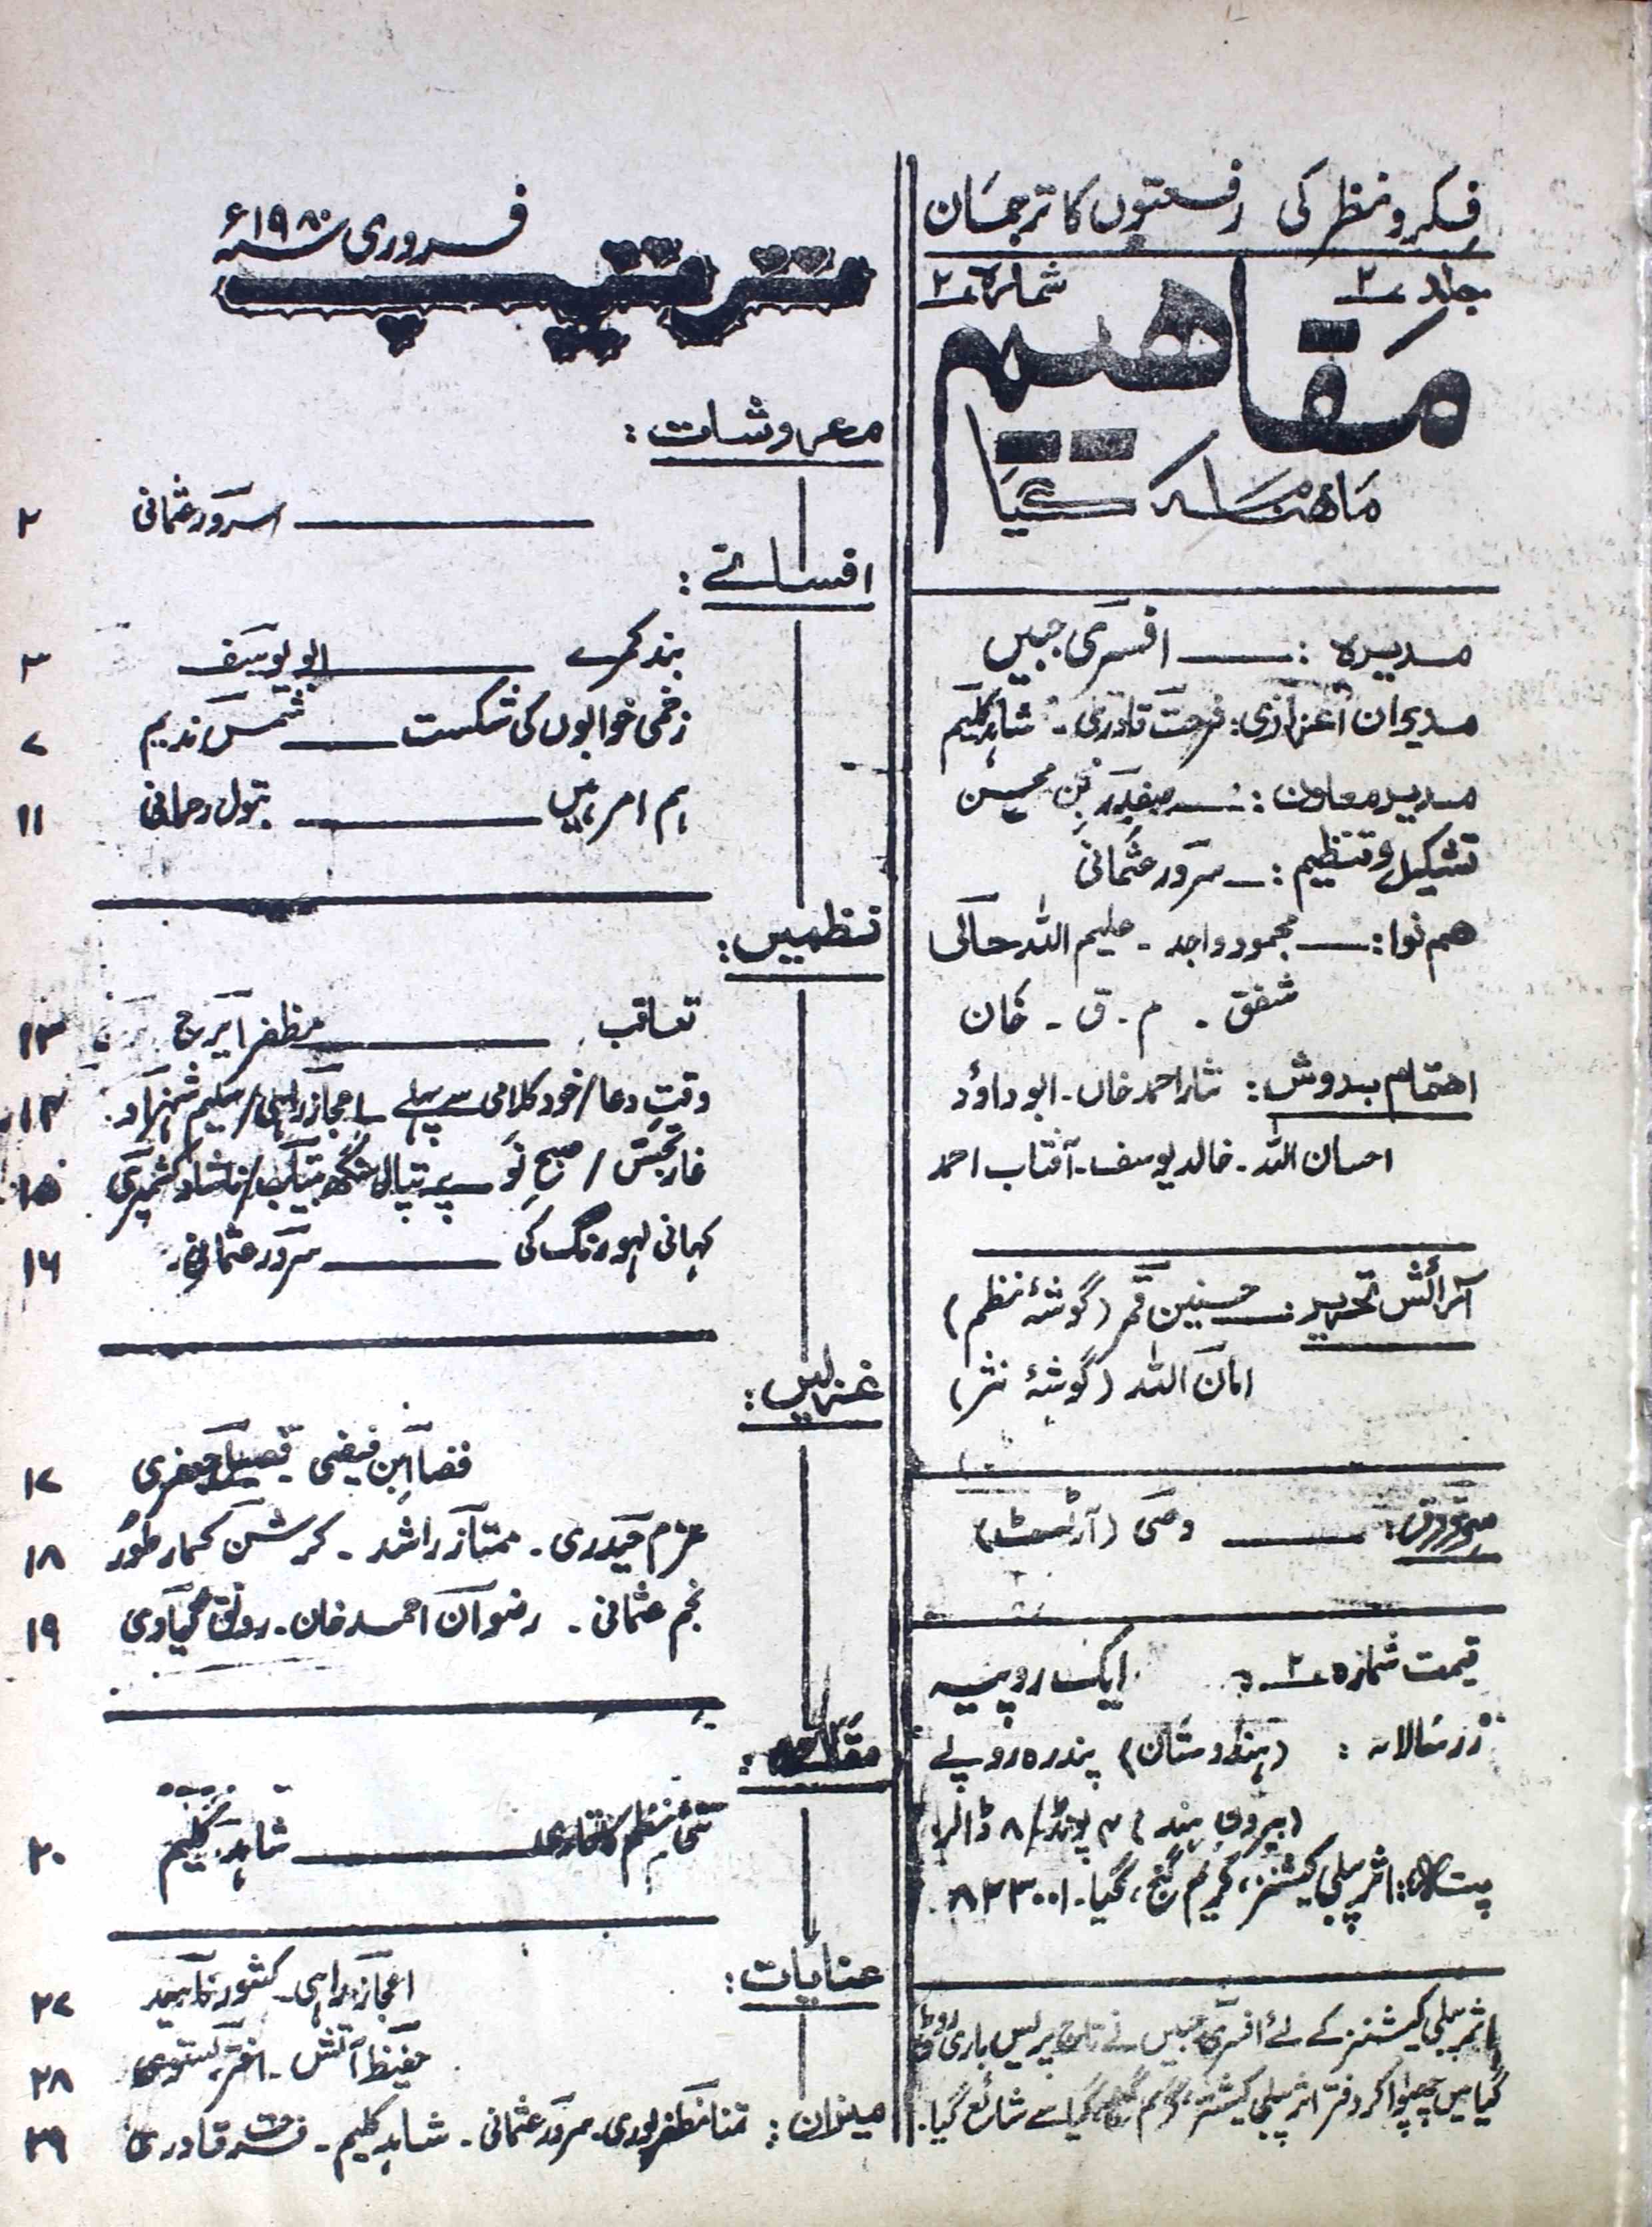 فکر و نظر کی رفعتوں کا ترجمان
جلد ۲ شمارہ ۲
مفاہیم
ماہنامہ گیا
مدیرہ : افسری جبیں
مدیران اعزازی : فرحت قادری - شاہد کلیم
مدیر معاون : صفدر بن محسن
تشکیل و تنظیم : سرور عثمانی
ہم نوا : محمود واجد - علیم اللہ حالی
شفق - م - ق - خان
اہتمام بدوش : نثار احمد خاں - ابو داؤد
احسان اللہ - خالد یوسف - آفتاب احمد
آرائش تحریر حسنین قمر (گوشۂ نظم)
امان اللہ (گوشۂ نثر)
سرورق : وصی (آرٹسٹ)
قیمت شمارہ ۲ : ایک روپیہ
زر سالانہ : (ہندوستان) پندرہ روپے
(بیرون ہند) ۴ پونڈ / ۸ ڈالر
پتہ : اثر پبلی کیشنز، کریم گنج، گیا - ۸۲۳۰۰۱
اثر پبلی کیشنز کے لئے افسری جبیں نے تاج پریس باری روڈ
گیا میں چھپوا کر دفتر اثر پبلی کیشنز، کریم گنج، گیا سے شائع گیا.
فروری ۱۹۸۰ء
ترتیب
معروشات :
سرور عثمانی ۲
افسانے :
بند کمرے ابو یوسف ۳
زخمی خوابوں کی شکست شمس ندیم ۷
ہم امر ہیں بتول رحمانی ۱۱
نظمیں :
تعاقب مظفر ایرج ۱۳
وقتِ دعا / خود کلامی سے پہلے اعجاز راہی / سلیم شہزاد ۱۴
خارجش / صبح نو پرتپال سنگھ بیتاب / ناشاد کشمیری ۱۵
کہانی لہو رنگ کی سرور عثمانی ۱۶
غزلیں :
فضا ابن فیضی - فضیل جعفری ۱۷
عزم حیدری - ممتاز راشد - کرشن کمار طور ۱۸
نجم عثمانی - رضوان احمد خان - رونق گیاوی ۱۹
مقالے :
نئی نظم کا شاہد کلیم ۲۰
عنایات :
اعجاز راہی - کشور ناہید ۲۷
حفیظ آتش - اختر بستوی ۲۸
میزان : تمنا مظفر پوری - سرور عثمانی - شاہد کلیم - فرحت قادری ۲۹